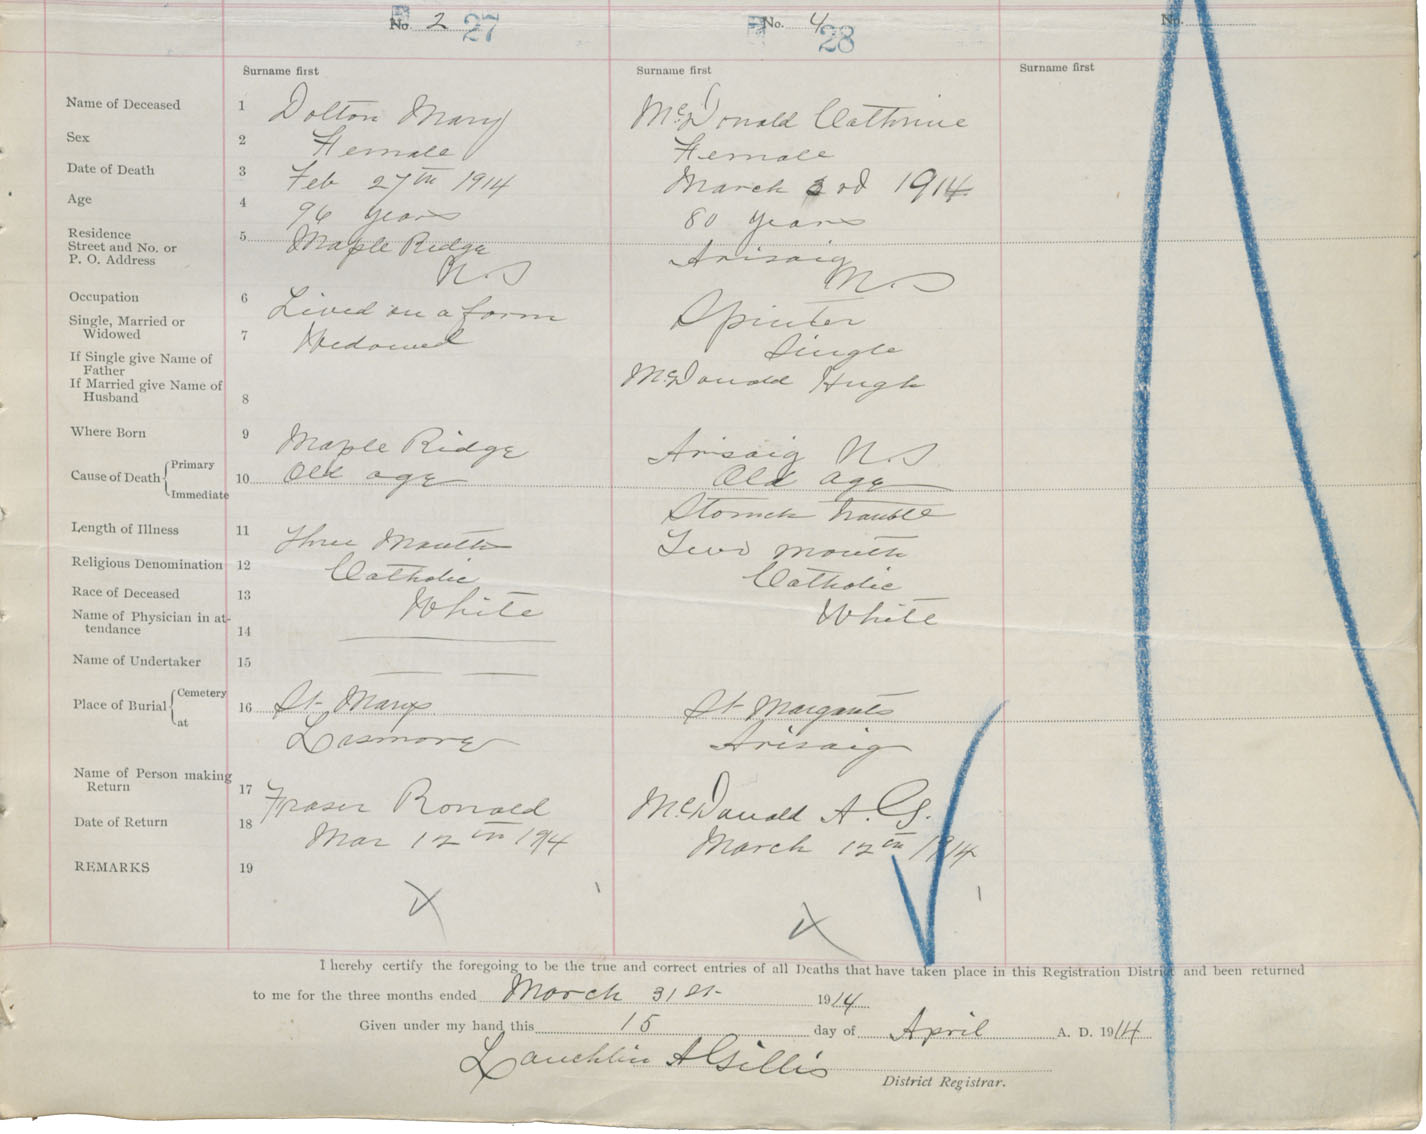 No. 2 27
No. 4 28
No.
Surname first
Surname first
Surname first
Name of Deceased 1 Dolton Mary McDonald Cathrine
Sex 2 Female Female
Date of Death 3 Feb 27th 1914 March 3rd 1914
Age 4 96 years 80 years
Residence
Street and No. or 5 Maple Ridge Arisaig
P. O. Address N.S N.S
Occupation 6 Lived on a farm Spinster
Single, Married or
Widowed 7 Widowed Single
If Single give Name of
Father McDonald Hugh
If Married give Name of
Husband 8
Where Born 9 Maple Ridge Arisaig N.S
Cause of Death Primary 10 Old age Old age
Immediate Stomch trouble
Length of Illness 11 three Months Two month
Religious Denomination 12 Catholic Catholic
Race of Deceased 13 White White
Name of Physician in at-
tendance 14
Name of Undertaker 15
Place of Burial Cemetery 16 St Marys St Margarets
at Lismore Arisaig
Name of Person making
Return 17 Fraser Ronald McDonald A. G.
Date of Return 18 Mar 12th 1914 March 12th 1914
REMARKS 19
I hereby certify the foregoing to be the true and correct entries of all Deaths that have taken place in this Registration District and been returned
to me for the three months ended March 31st 1914
Given under my hand this 15 day of April A. D. 1914
Lauchlin A Gillis
District Registrar.